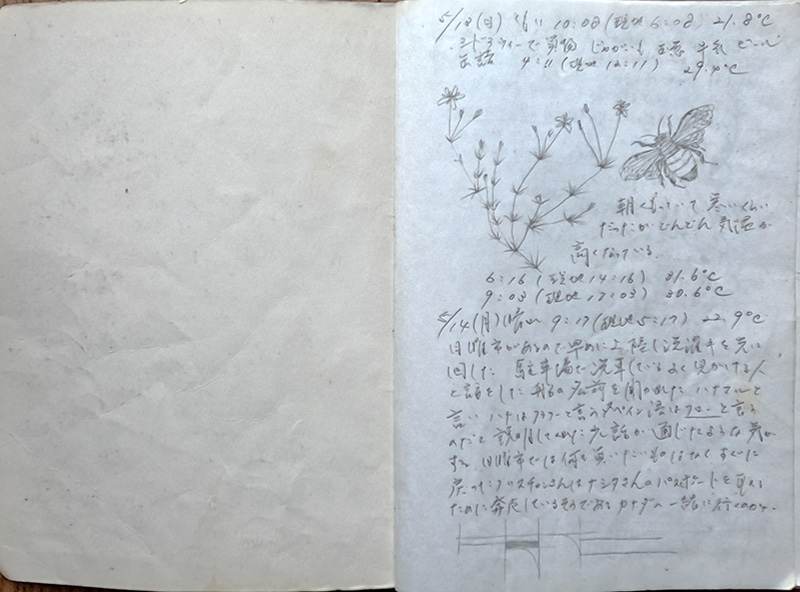 5/13(日) 10:08(現地6:08) 21.8°C
で買物 じゃがいも 玉葱 牛乳 ビール
4:11(現地12:11) 29.4°C
朝くもっていて 寒いくらい
だったが どんどん 気温が
高くなっている。
6:16(現地14:16) 31.6°C
9:03(現地17:03) 30.6°C
5/14(月)晴れ 9:17(現地5:17) 22.9°C
日曜市があるので早めに上陸し洗濯干を先に
回した 駐車場で洗車しているよく見かける人
と話をした 船の名前を聞かれた ハナマルと
言い ハナはフラワーと言う スペイン語はフローと言う
のだと説明してくれた 少し話が通じたような気が
する 日曜市では何も買いたいものはなくすぐに
戻った クリスチャンさんは さんのパスポートを取る
ために奔走しているそうである カナダへ一緒に行くのか。